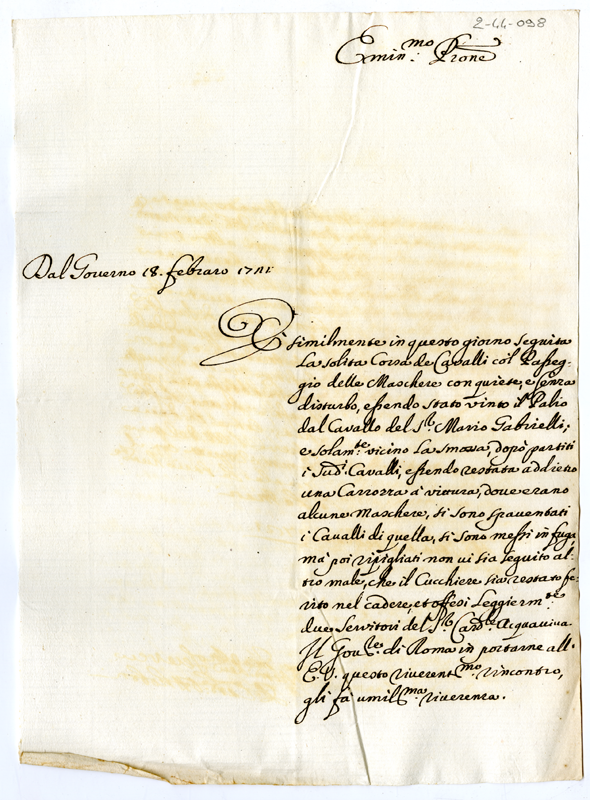 2-44-098
Emin.mo Prone
Dal Governo 18. febraro 1741
È similmente in questo giorno seguita
la solita Corsa de Cavalli col' Passeg-
gio delle Maschere con quiete, e senza
disturbo, essendo stato vinto il Palio
dal Cavallo del S.r Mario Gabrielli;
e solam.te vicino la smossa, dopò partiti
i Sud.i Cavalli, essendo restata addietro
una Carrozza à vittura, dove erano
alcune Maschere, si sono spaventati
i Cavalli di quella, si sono messi in fuga
mà poi ripigliati non vi sia seguito al-
tro male, che il Cucchiere sia restato fe-
rito nel cadere, et offesi Leggierm.te
due Servitori del S.r Card.le Acquaviva.
Il Gov.re di Roma in portarne all'
E. V. questo riverent.mo rincontro,
gli fà umil.ma riverenza.